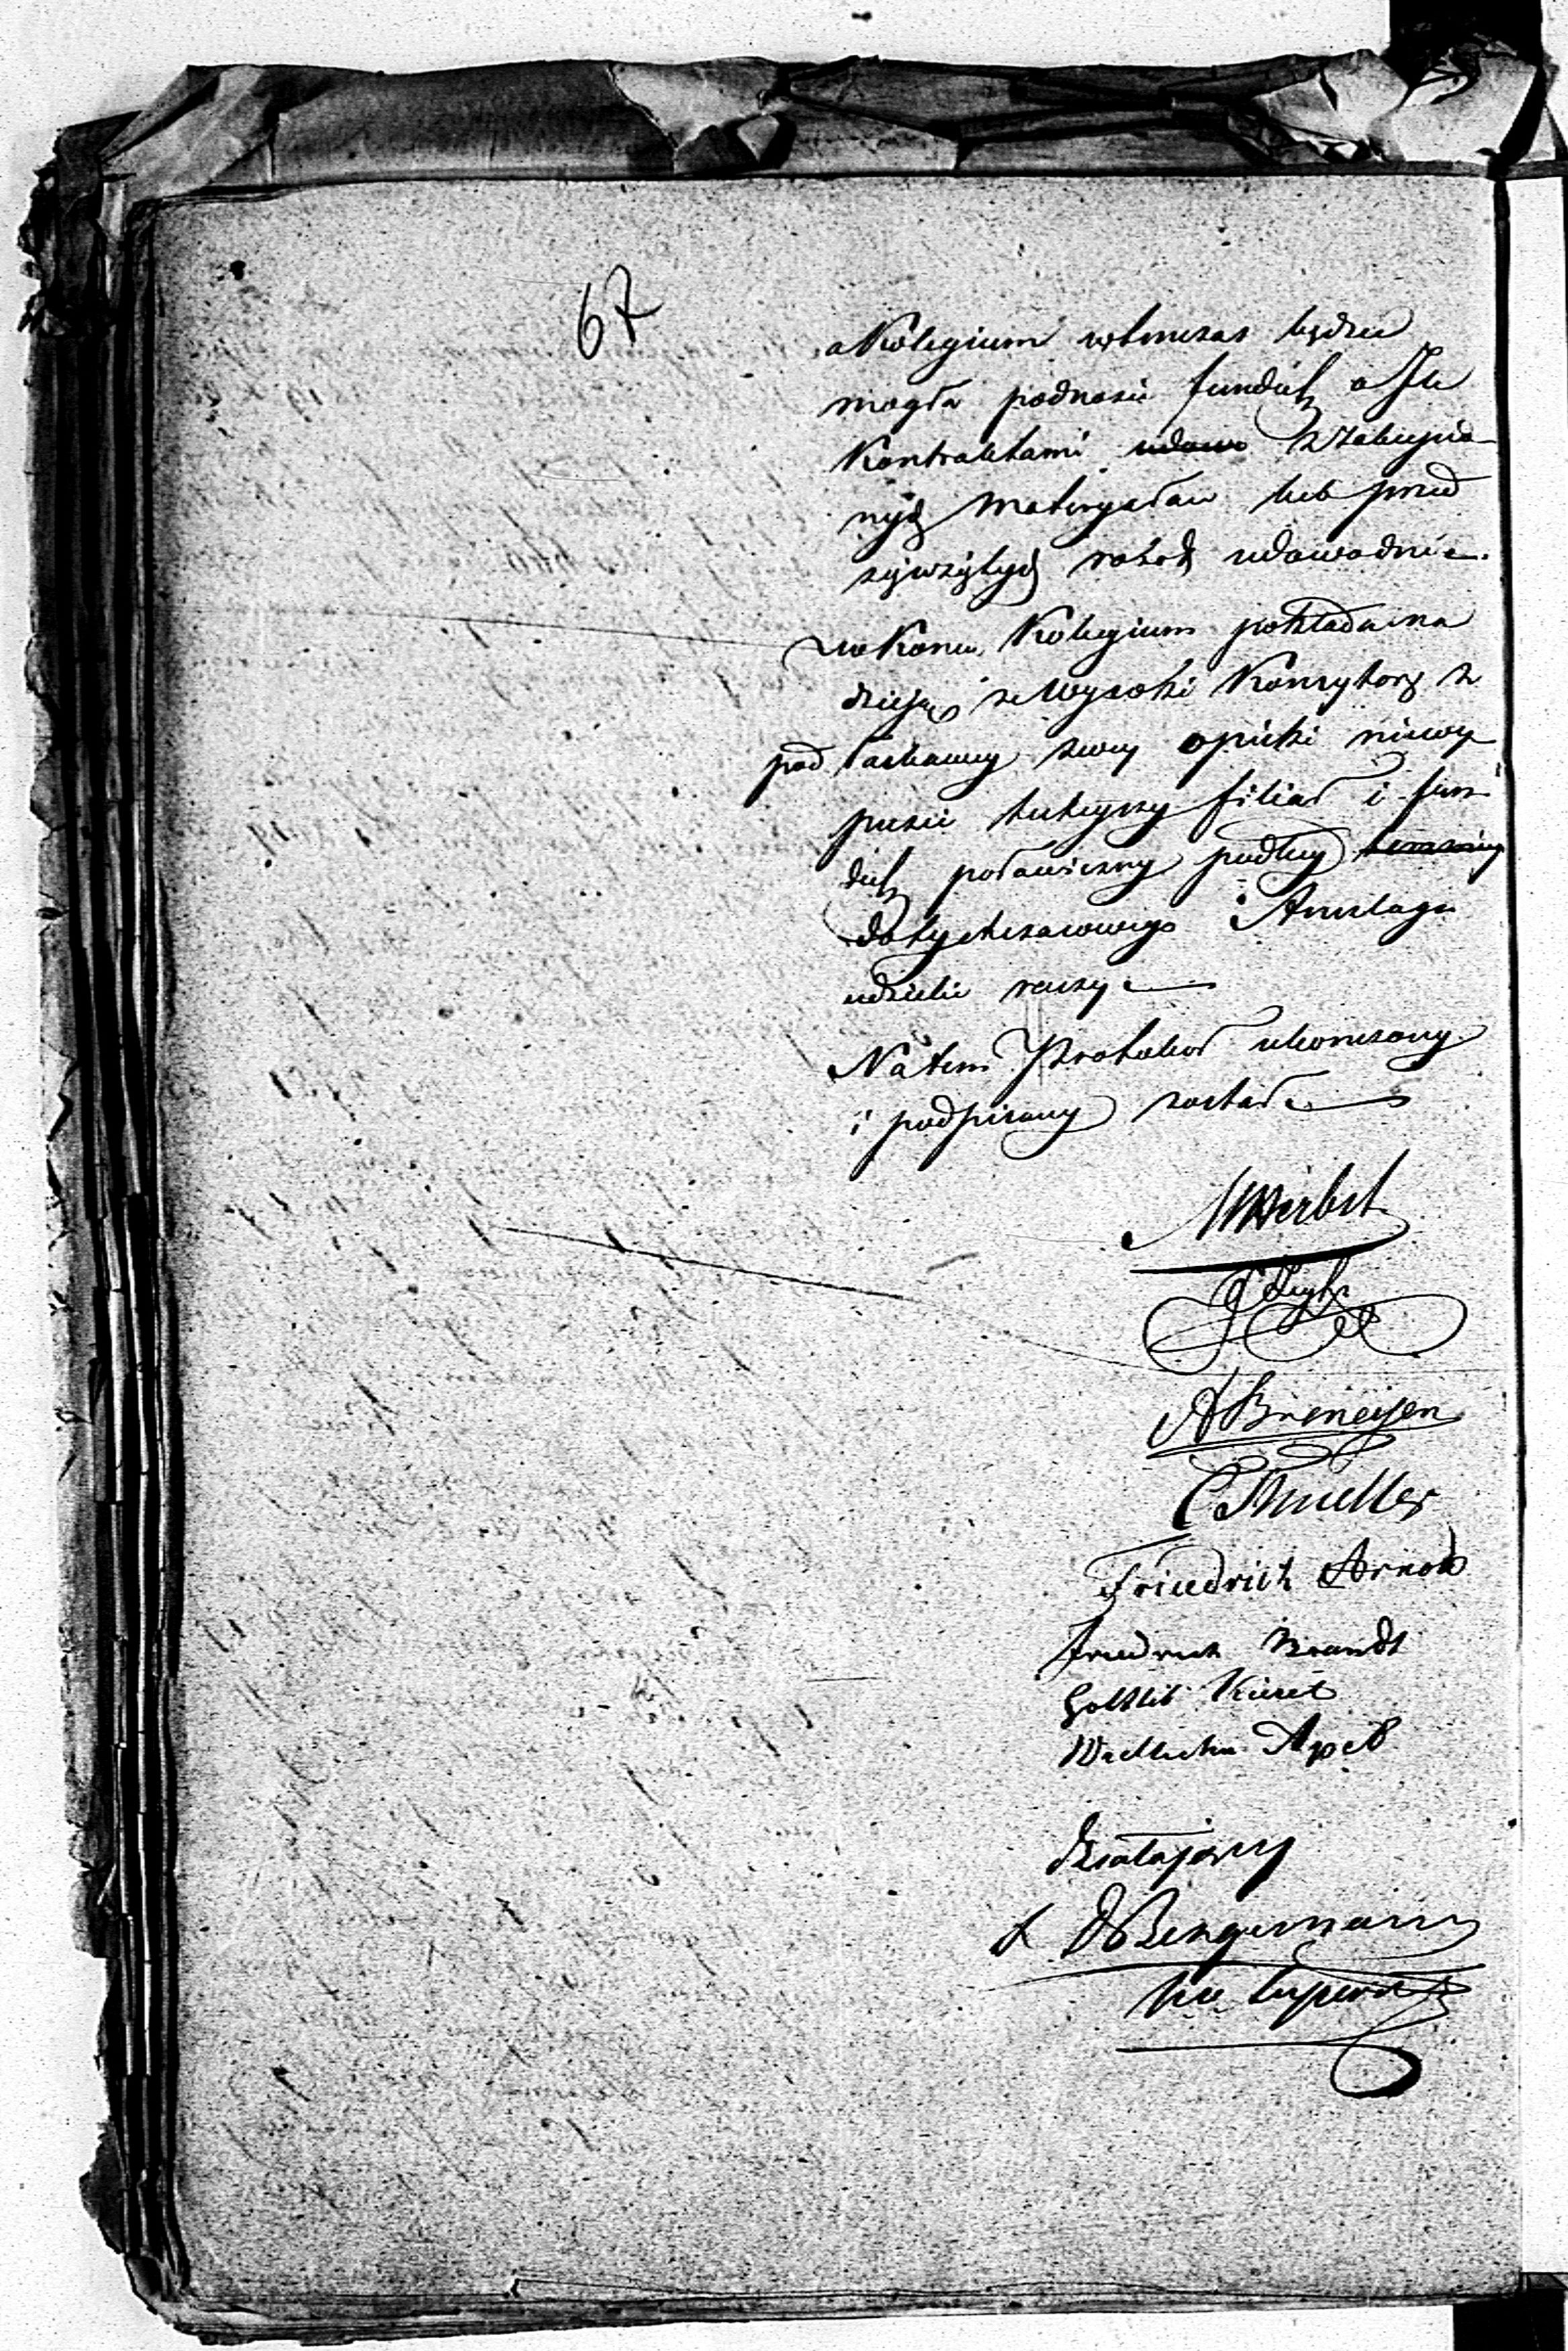 67
a Kolegium wtenczas będzie
mogła podnosić fundusz o Ile
Kontraktami udowo z Zakupio-
nych Materyałow lub przed
sięwziętych robot udowodnie.
w Koncu Kolegium pokłada na
dzieję że Wysoki Konsystorz z
pod łaskawey swey opieki niewy
puści tuteyszy filiał i fun
dusz połowiczny podług
dotychczasowego Anszlagu
udzielić raczy.
Na tem Protokoł ukonczony
i podpisany został.
MHerbst
A Breneisen
C Mueller
Friedrich Arnold
Friedrich Brandt
Gottlib
Wilhelm Apelt
działaiący
Bergemann